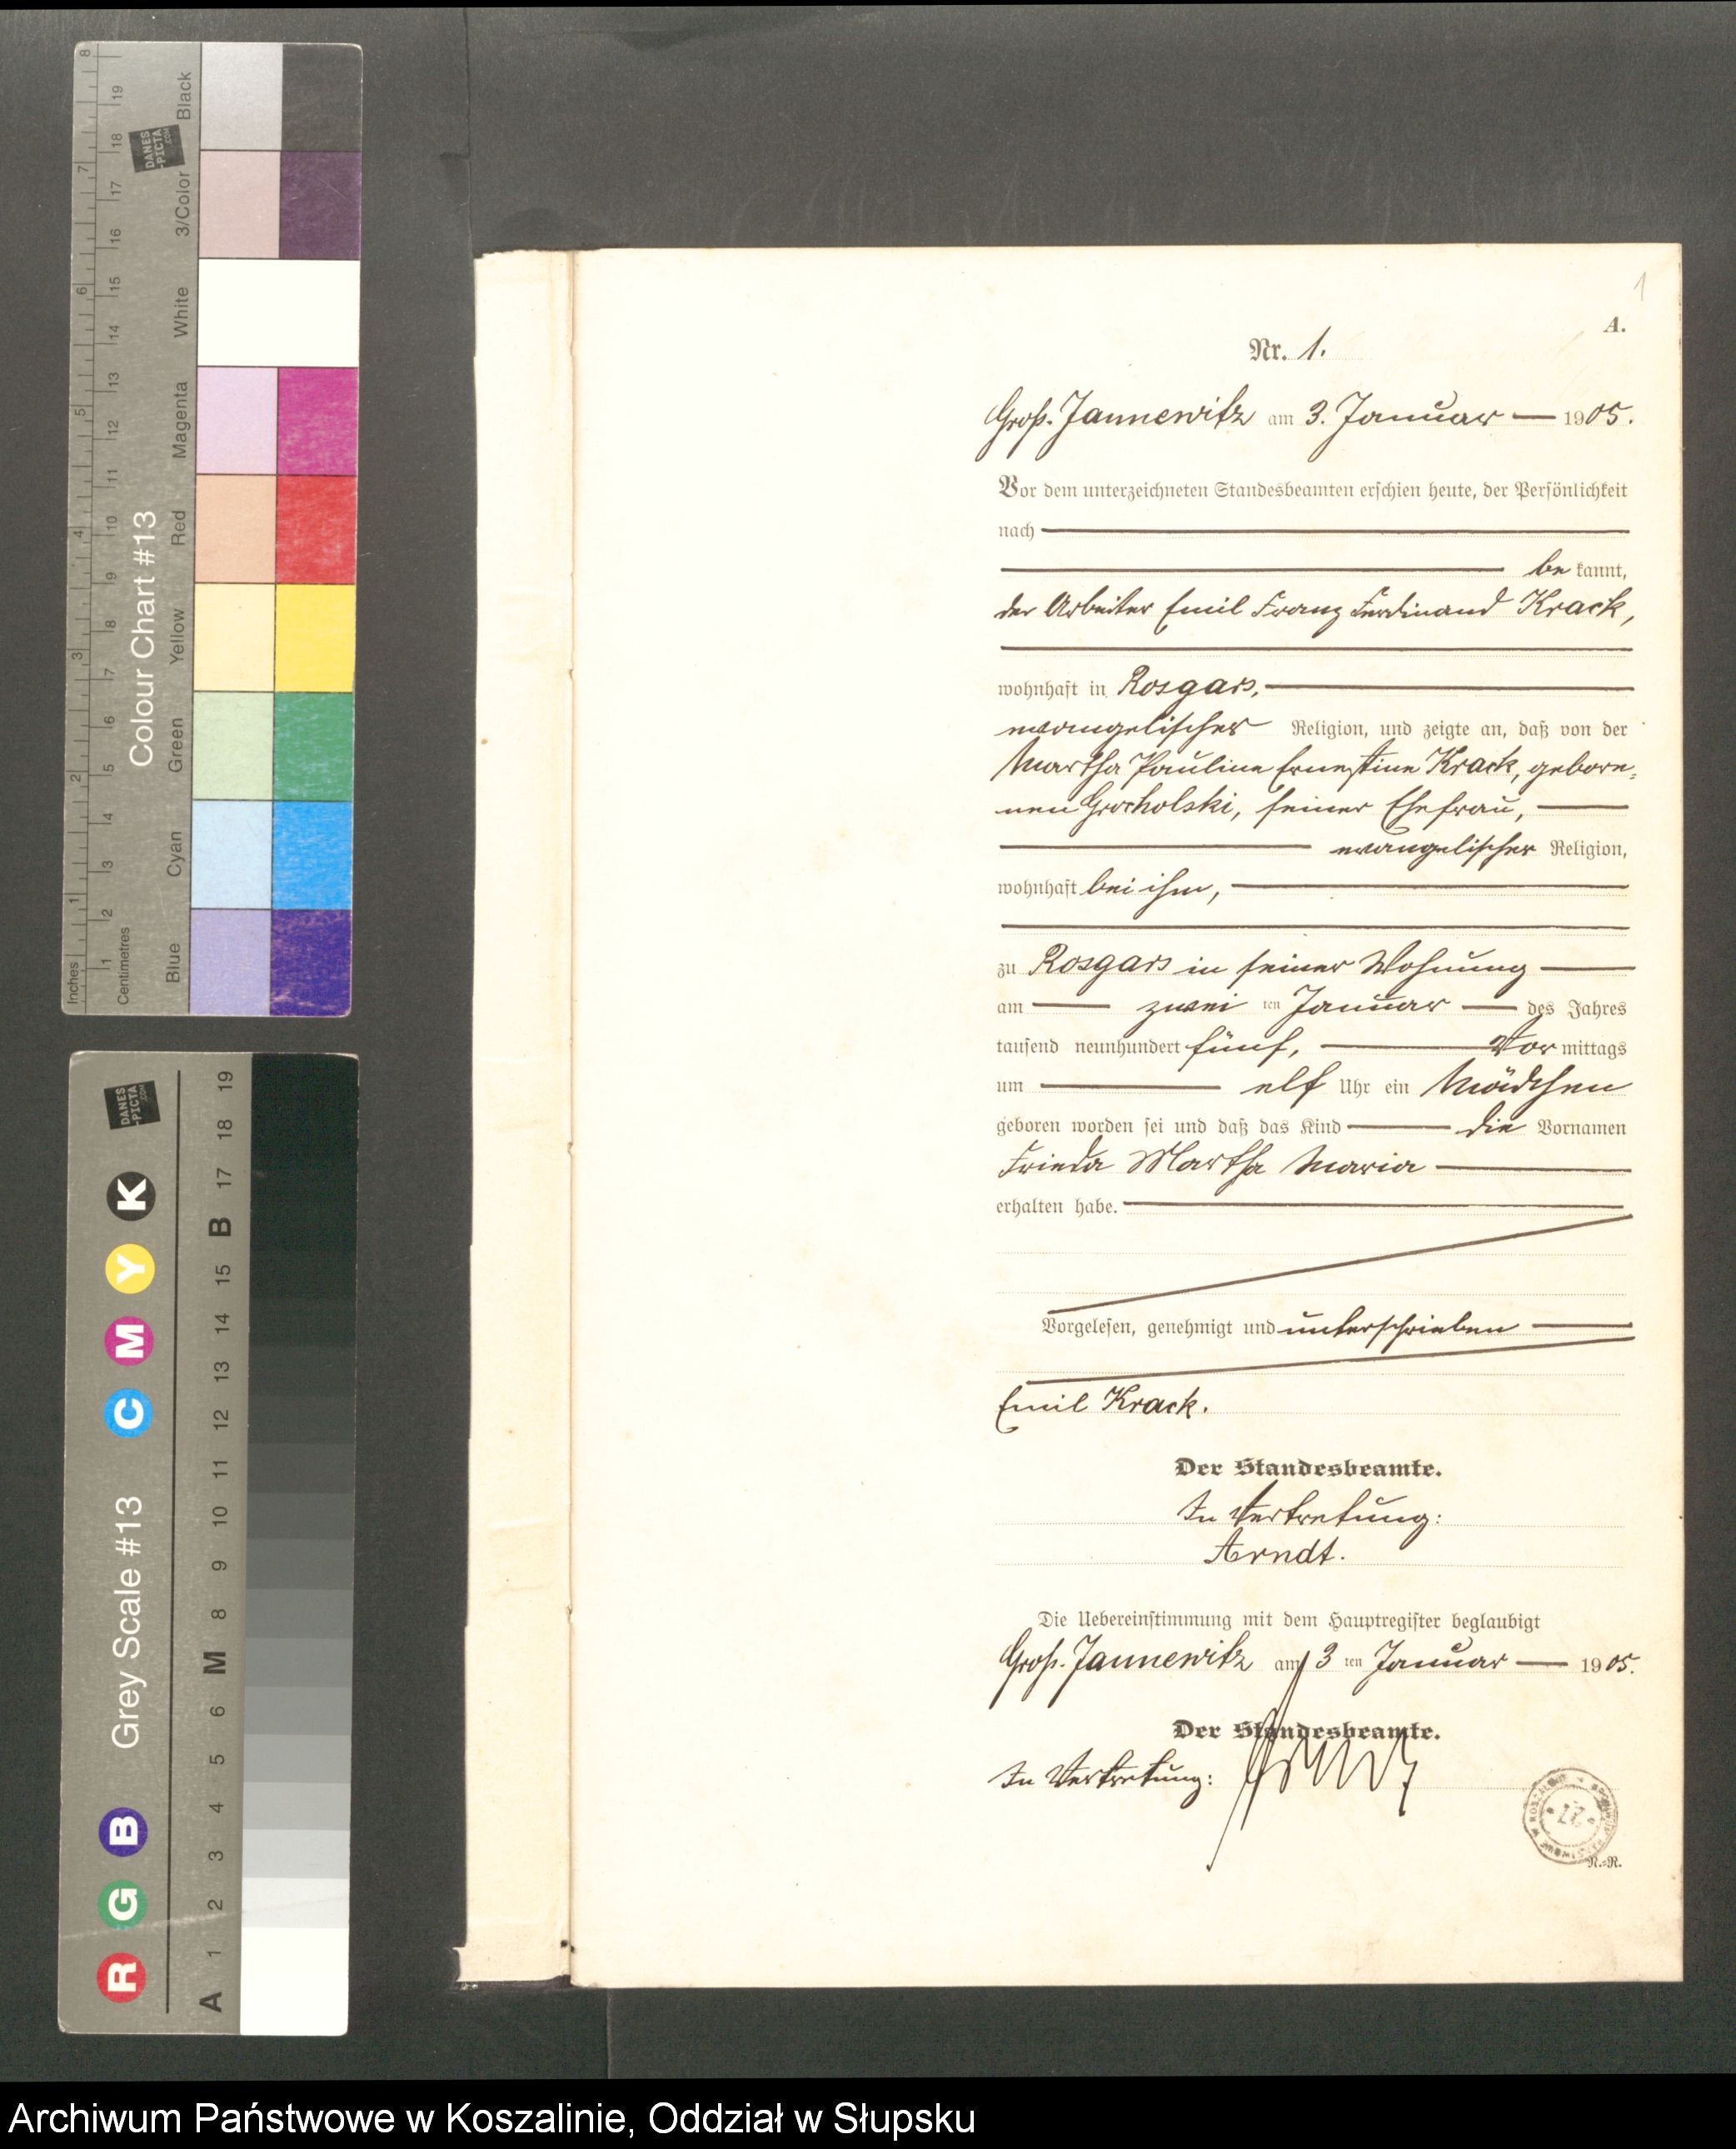 1
A.
Nr. 1.
Groß-Jannewitz am 3. Januar 1905.
Vor dem unterzeichneten Standesbeamten erschien heute, der Persönlichkeit
nach
be kannt,
der Arbeiter Emil Franz Ferdinand Krack,
wohnhaft in Rosgars,
evangelischer Religion, und zeigte an, daß von der
Martha Pauline Ernestine Krack, gebore-
nen Grocholski, seiner Ehefrau,
evangelischer Religion,
wohnhaft bei ihm,
zu Rosgars in seiner Wohnung
am zwei ten Januar des Jahres
tausend neunhundert fünf, Vor mittags
um elf Uhr ein Mädchen
geboren worden sei und daß das Kind die Vornamen
Frieda Martha Maria
erhalten habe.
Vorgelesen, genehmigt und unterschrieben
Emil Krack.
Der Standesbeamte.
In Vertretung:
Arndt.
Die Uebereinstimmung mit dem Hauptregister beglaubigt
Groß-Jannewitz am 3 ten Januar 1905.
Der Standesbeamte.
In Vertretung: Arndt
R.-R.
Colour Chart #13
Blue Cyan Green Yellow Red Magenta White 3/Color Black
Inches 1 2 3 4 5 6 7 8
Centimetres 1 2 3 4 5 6 7 8 9 10 11 12 13 14 15 16 17 18 19
DANES
-PICTA
.COM
Grey Scale #13
R G B C M Y K
A 1 2 3 4 5 6 M 8 9 10 11 12 13 14 15 B 17 18 19
DANES
-PICTA
.COM
Archiwum Państwowe w Koszalinie, Oddział w Słupsku